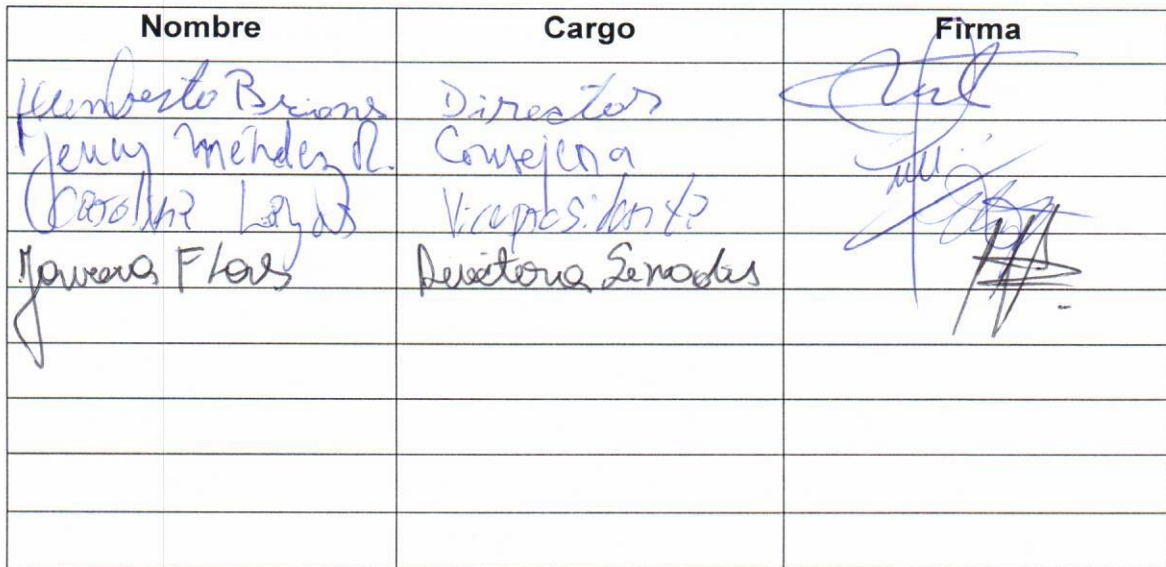 Nombre Cargo Firma
Humberto Briones Director
Jenny Méndez R. Consejera
Carolina Vicepresidenta
Javiera Flores Directora Senadis